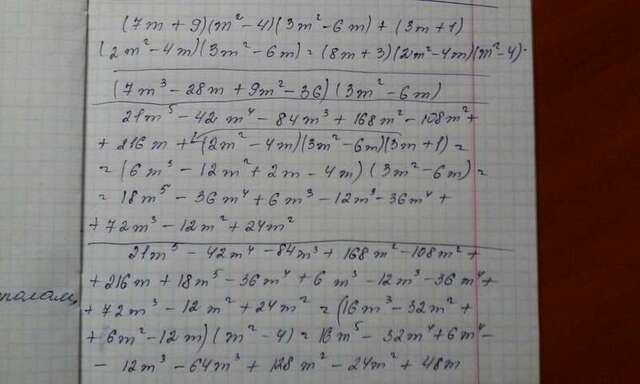 (7m + 9)(m² - 4)(3m² - 6m) + (3m + 1)
(2m² - 4m)(3m² - 6m) = (8m + 3)(2m² - 4m)(m² - 4)
(7m³ - 28m + 9m² - 36)(3m² - 6m)
21m⁵ - 42m⁴ - 84m³ + 168m² - 108m² +
+ 216m + (2m² - 4m)(3m² - 6m)(3m + 1) =
= (6m³ - 12m² + 2m - 4m)(3m² - 6m) =
= 18m⁵ - 36m⁴ + 6m³ - 12m³ - 36m⁴ +
+ 72m³ - 12m² + 24m²
21m⁵ - 42m⁴ - 84m³ + 168m² - 108m² +
+ 216m + 18m⁵ - 36m⁴ + 6m³ - 12m³ - 36m⁴ +
полам,
+ 72m³ - 12m² + 24m² = (16m³ - 32m² +
+ 6m² - 12m)(m² - 4) = 16m⁵ - 32m⁴ + 6m⁴ -
- 12m³ - 64m³ + 128m² - 24m² + 48m